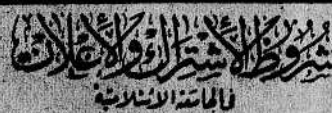 شروط الأشتراك والأعلان
في الجامعة الإسلامية